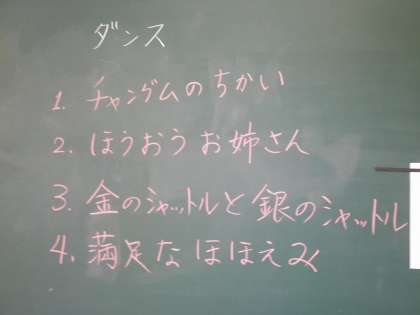 ダンス
1. チャングムのちかい
2. ほうおうお姉さん
3. 金のシャットルと銀のシャットル
4. 満足なほほえみ